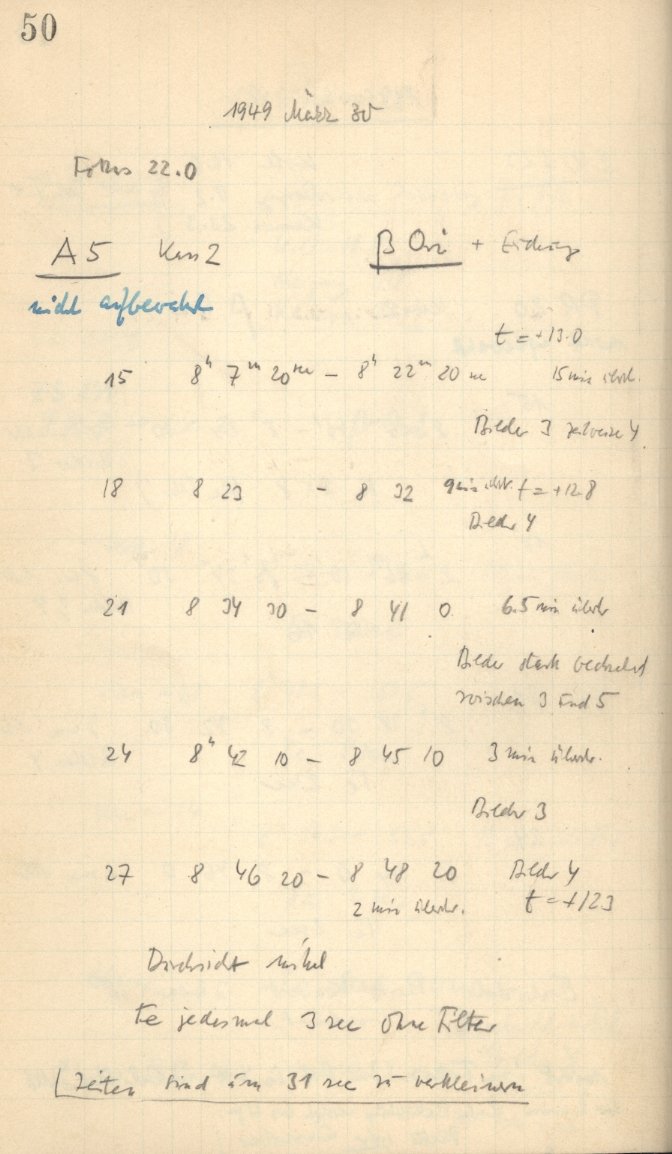 50
1949 März 30
Fokus 22.0
A5 Kass 2 β Ori + Eichung
nicht aufbewahrt
t = +13.0
15 8h 7m 20 – 8h 22m 20 15 min
Bilder 3 zeitweise 4
18 8 23 – 8 32 9 min t = +12.8
Bilder 4
21 8 34 30 – 8 41 0 6.5 min
Bilder stark wechselnd
zwischen 3 und 5
24 8h 42 10 – 8 45 10 3 min
Bilder 3
27 8 46 20 – 8 48 20 Bilder 4
2 min t = +12.3
Durchsicht mittel
Fe jedesmal 3 sec ohne Filter
Zeiten sind um 31 sec zu verkleinern